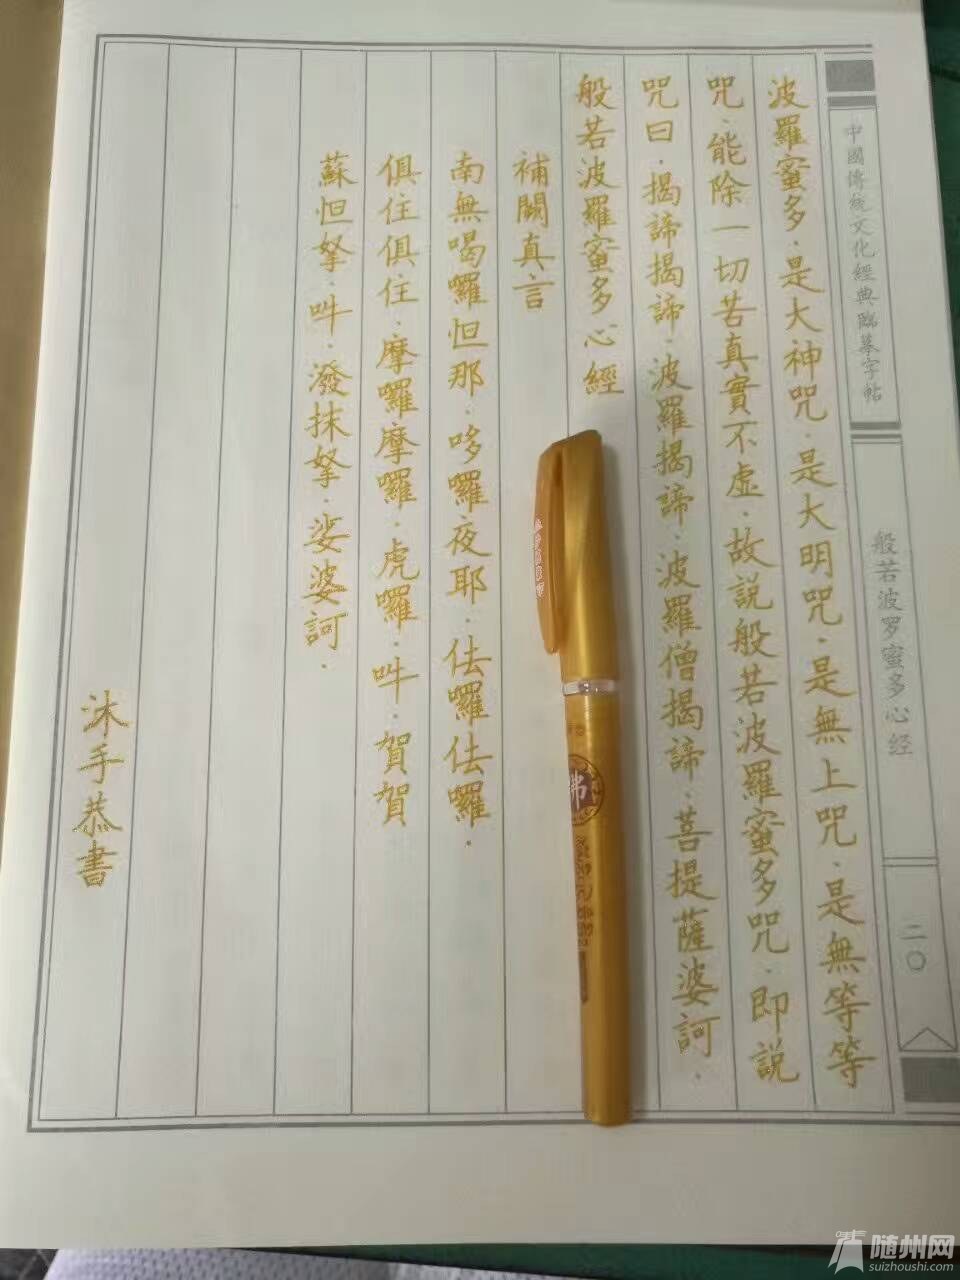 中國傳統文化經典臨摹字帖
般若波罗蜜多心经
二〇
波羅蜜多．是大神咒．是大明咒．是無上咒．是無等等
咒．能除一切苦真實不虛．故説般若波羅蜜多咒．即説
咒曰．揭諦揭諦．波羅揭諦．波羅僧揭諦．菩提薩婆訶．
般若波羅蜜多心經
補闕真言
南無喝囉怛那．哆囉夜耶．佉囉佉囉．
俱住俱住．摩囉摩囉．虎囉．吽．賀賀
蘇怛拏．吽．潑抹拏．娑婆訶．
沐手恭書
佛
随州网
suizhoushi.com